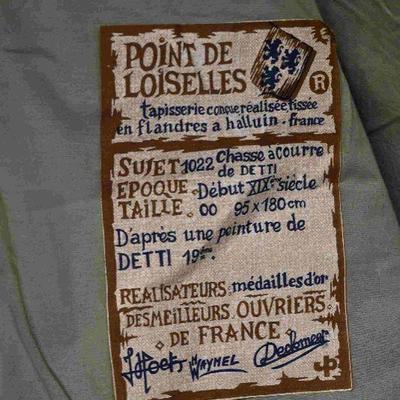 POINT DE
LOISELLES
R
tapisserie conçue réalisée, tissée
en flandres à halluin . france
SUJET 1022 Chasse à courre
de DETTI
EPOQUE . Début XIXème siècle
TAILLE . 00 95 x 180 cm
D'après une peinture de
DETTI 19ème.
REALISATEURS médailles d'or
DES MEILLEURS OUVRIERS
DE FRANCE